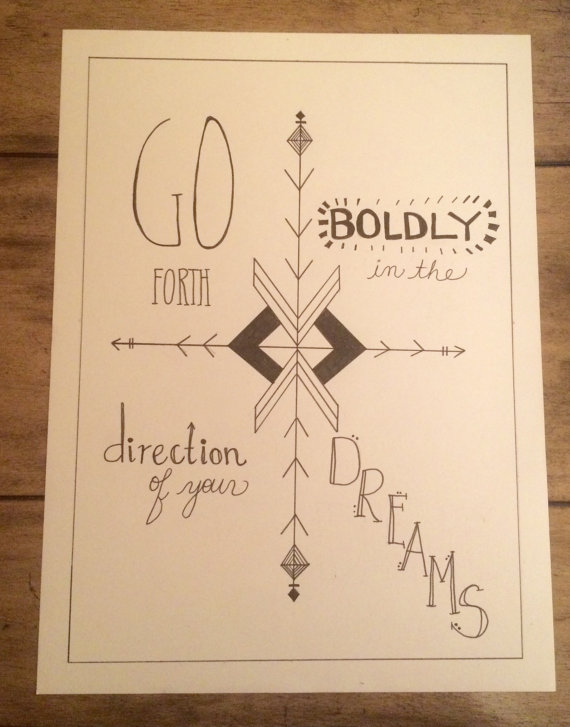 GO
FORTH
BOLDLY
in the
direction
of your
DREAMS